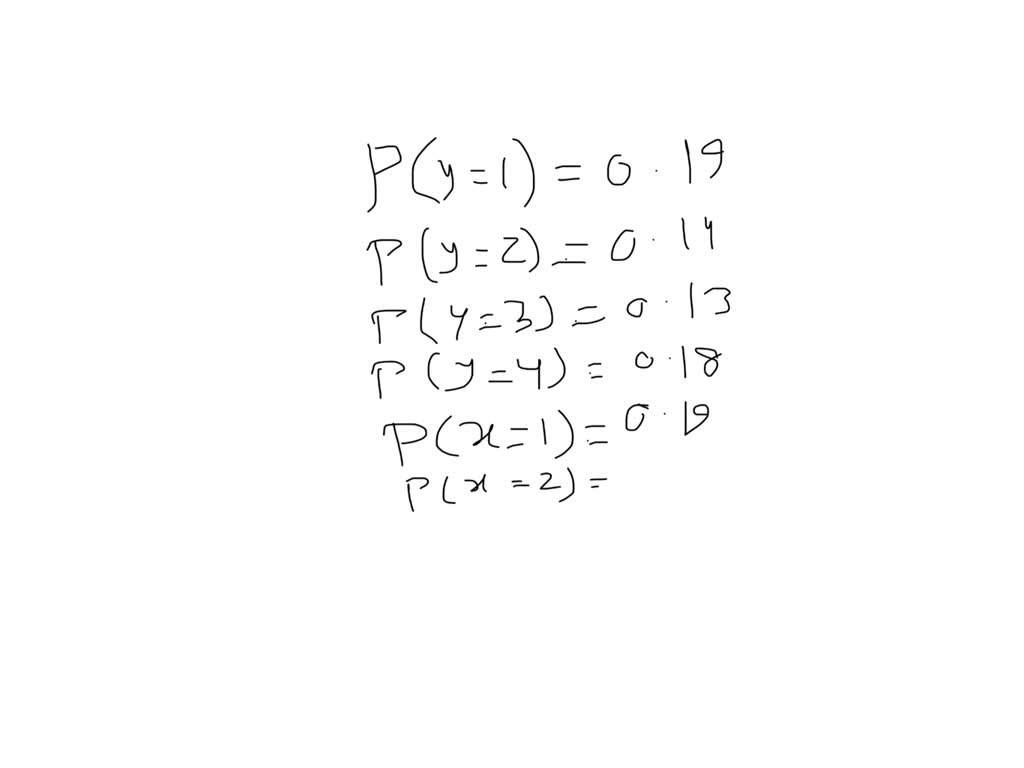 P(y=1) = 0.19
P(y=2) = 0.14
P(y=3) = 0.13
P(y=4) = 0.18
P(x=1) = 0.19
P(x=2) =